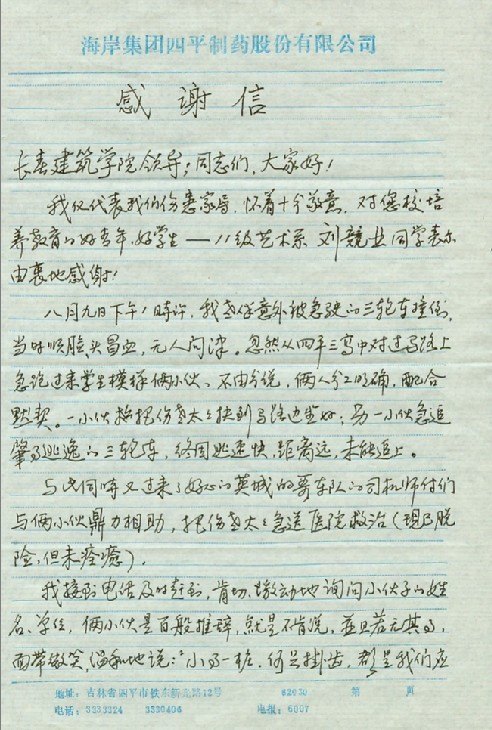 海岸集团四平制药股份有限公司
感谢信
长春建筑学院领导；同志们，大家好！
我仅代表我们伤患家属，怀着十个敬意，对您校培
养教育的好青年、好学生——八级艺术系 刘競业同学表示
由衷地感谢！
八月九日下午1时许，我老伴意外被急驶的三轮车撞倒，
当时顺脸头冒血，无人问津。忽然从四平三高中对过马路上
急跑过来学生模样俩小伙、不由分说，俩人分工明确，配合
默契。一小伙搀把伤老太太扶到马路边坐好；另一小伙急追
肇事逃逸的三轮车，终因逃速快、距离远，未能追上。
与此同时又过来了好心的英城的哥车队的司机师付们
与俩小伙鼎力相助，把伤老太太急送医院救治（现已脱
险，但未痊癒）。
我接到电话及时赶到，肯切、激动地询问小伙子的姓
名、单位，俩小伙是百般推辞，就是不肯说，并且若无其事，
面带微笑，温和地说："小事一桩，何足掛齿，都是我们应
地址：吉林省四平市铁东新北路12号 第 页
电话：3233324 3330406 电报：6007